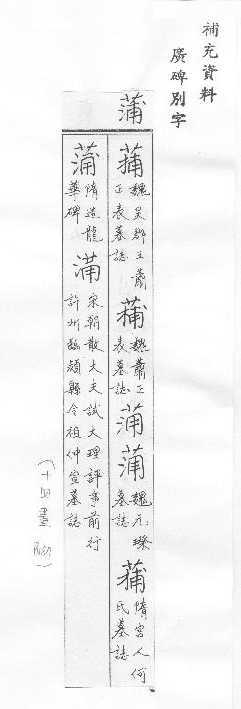 補充資料
廣碑別字
蒲
蒲 魏吴郡王蕭正表墓誌 蒲 魏蕭正表墓誌 蒲 蒲 魏元璨墓誌 蒲 隋宮人何氏墓誌
蒲 隋造龍華碑 蒲 宋朝散大夫試大理評事前行許州臨潁縣令祖仲宣墓誌
(十四畫